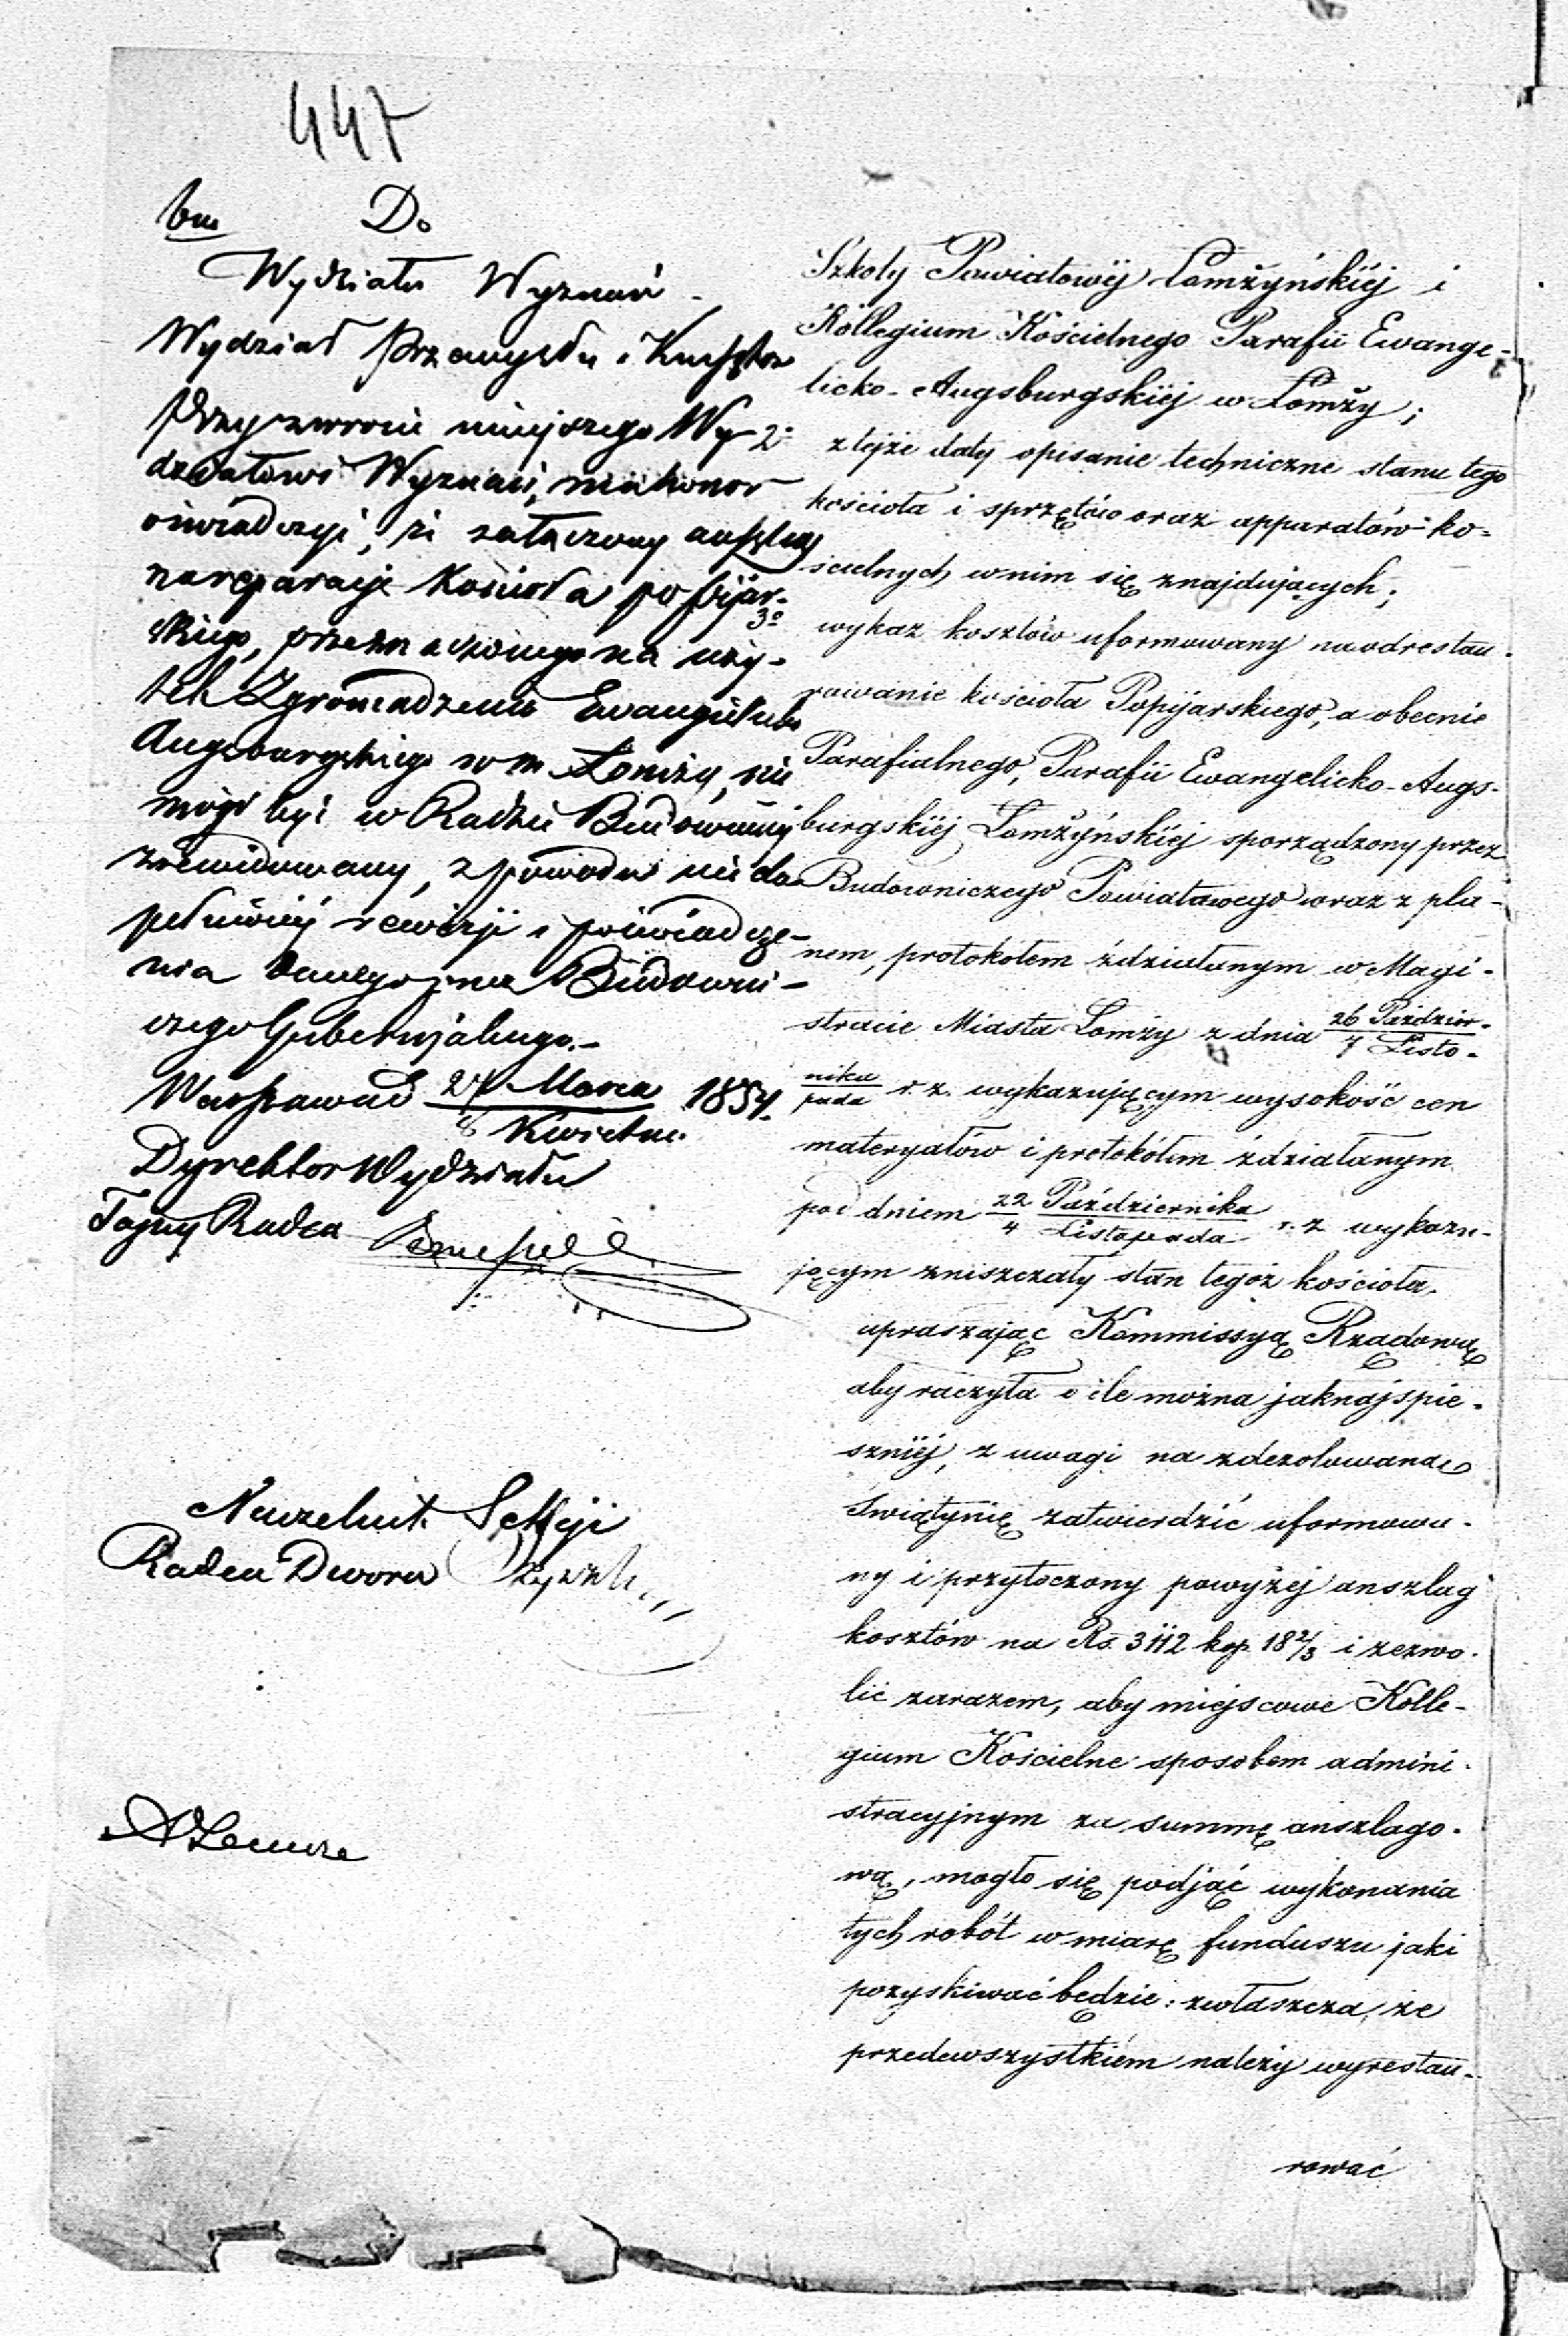 447
Do
Wydziału Wyznań.
Wydział Przemysłu i Kunsztów
Przy zwrocie niniejszego Wy-
działowi Wyznań, ma honor
oświadczyć, iż załączony anszlag
na reparacje Kościoła po pijar-
skiego, przeznaczonego na uży-
tek Zgromadzenia Ewangelicko
Augsburgskiego w m. Łomży, nie
mógł być w Radzie Budowniczej
zrewidowany, z powodu niedo-
pełnionej rewizji i poświadcze-
nia onego przez Budowni-
czego Gubernijalnego.-
Warszawa d. 27 Marca 1854.
8 Kwietnia
Dyrektor Wydziału
Tajny Radca
Naczelnik Sekcji
Radca Dworu
Szkoły Powiatowéj Łomżyńskiéj i
Kollegium Kościelnego Parafii Ewange-
licko-Augsburgskiéj w Łomży;
2o z tejże daty opisanie techniczne stanu tego
kościoła i sprzętów oraz apparatów ko-
ścielnych w nim się znajdujących;
3o wykaz kosztów uformowany na odrestau-
rowanie kościoła Popijarskiego, a obecnie
Parafialnego, Parafii Ewangelicko-Augs-
burgskiéj Łomżyńskiéj sporządzony przez
Budowniczego Powiatowego wraz z pla-
nem, protokołem zdziałanym w Magi-
stracie Miasta Łomży z dnia 26 Paździer-
7 Listo-
nika
pada r. z. wykazującym wysokość cen
materyałów i protokółem zdziałanym
pod dniem 22 Października
4 Listopada r. z wykazu-
jącym zniszczały stan tegoż kościoła.
upraszając Kommissyą Rządową
aby raczyła o ile można jaknajspie-
szniéj, z uwagi na zdezolowaną
Świątynię zatwierdzić uformowa-
ny i przytoczony powyżej anszlag
kosztów na Rs. 3112 kop. 18 2/3 i zezwo-
lić zarazem, aby miejscowe Kolle-
gium Kościelne sposobem admini-
stracyjnym za summę anszlago-
wą, mogło się podjąć wykonania
tych robót w miarę funduszu jaki
pozyskiwać będzie: zwłaszcza, że
przedewszystkiém należy wyrestau-
rować